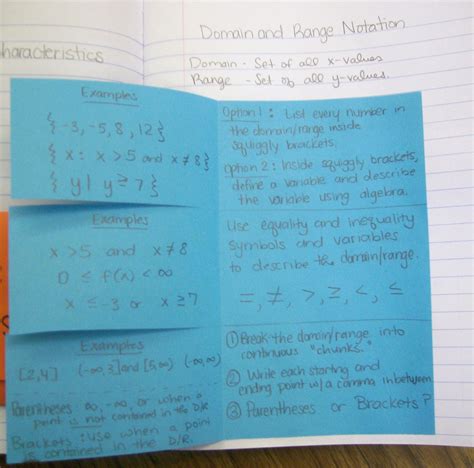 Domain and Range Notation
characteristics
Domain - Set of all x-values
Range - Set of all y-values.
Examples
{-3, -5, 8, 12}
{x: x > 5 and x ≠ 8}
{y | y ≥ 7}
Option 1: List every number in
the domain/range inside
squiggly brackets.
Option 2: Inside squiggly brackets,
define a variable and describe
the variable using algebra.
Examples
x > 5 and x ≠ 8
0 ≤ f(x) < ∞
x ≤ -3 or x ≥ 7
Use equality and inequality
symbols and variables
to describe the domain/range.
=, ≠, >, ≥, <, ≤
Examples
[2,4] (-∞,3] and [5,∞) (-∞,∞)
Parentheses ∞, -∞, or when a
point is not contained in the D/R
Brackets: use when a point
is contained in the D/R.
① Break the domain/range into
continuous "chunks."
② Write each starting and
ending point w/a comma in between
③ Parentheses or Brackets?